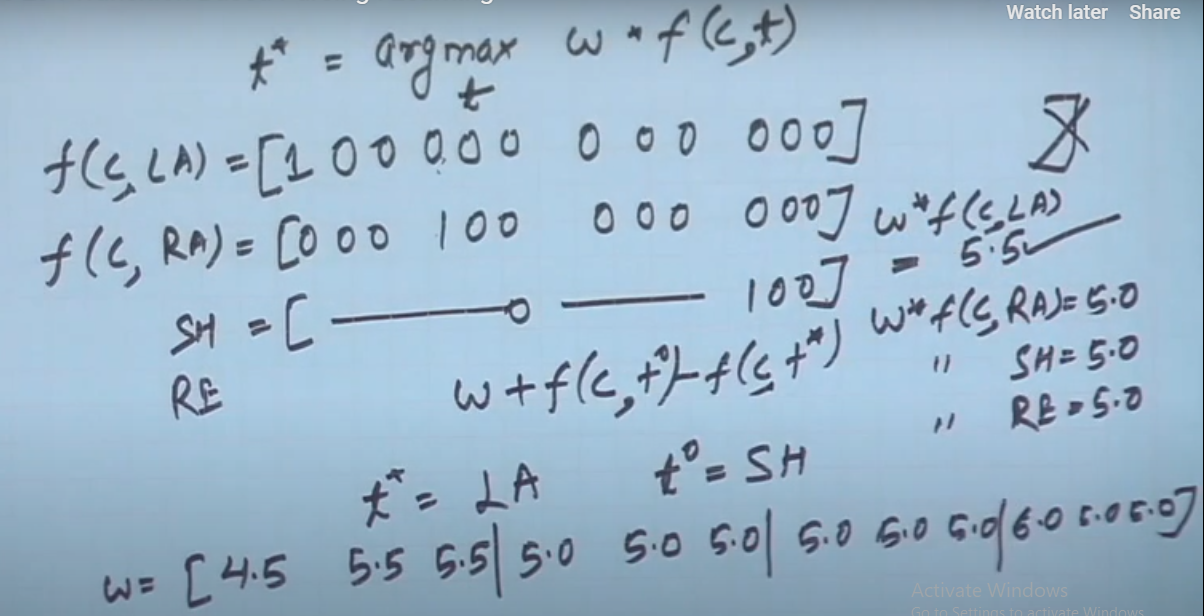 Watch later Share
t* = argmax w * f(c,t)
t
f(c, LA) = [1 0 0 0.00 0 0 0 000]
f(c, RA) = [000 100 000 000] w*f(c,LA)
= 5.5✓
SH = [ ———0 ——— 100] w*f(c,RA)=5.0
RE w+f(c,t⁰)-f(c,t*) " SH=5.0
" RE=5.0
t* = LA t⁰ = SH
w= [4.5 5.5 5.5|5.0 5.0 5.0|5.0 5.0 5.0|6.0 5.0 5.0]
Activate Windows
Go to Settings to activate Windows